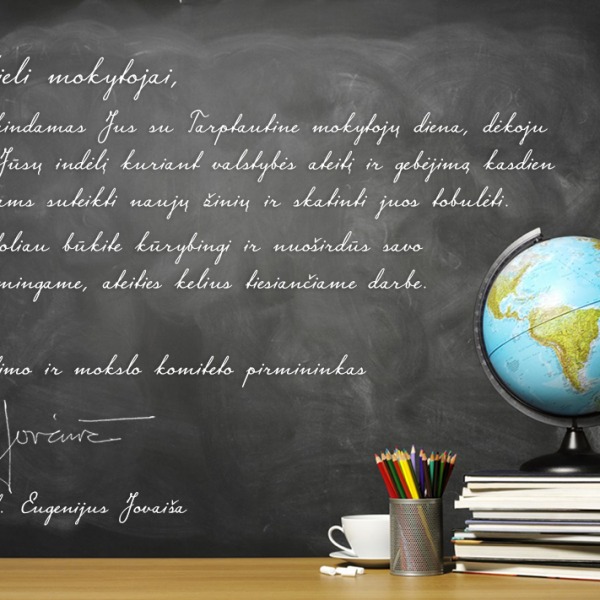 ieli mokytojai,
kindamas Jus su Tarptautine mokytojų diena, dėkoju
Jūsų indėlį kuriant valstybės ateitį ir gebėjimą kasdien
ms suteikti naujų žinių ir skatinti juos tobulėti.
oliau būkite kūrybingi ir nuoširdūs savo
mingame, ateities kelius tiesiančiame darbe.
imo ir mokslo komiteto pirmininkas
Eugenijus Jovaiša